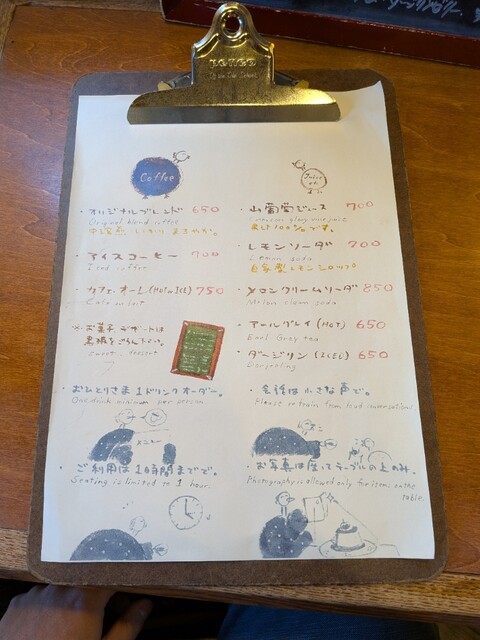 Coffee
Juice
・オリジナルブレンド 650
Original blend coffee
・アイスコーヒー 700
Iced coffee
・カフェ・オーレ (HOT or ICE) 750
Cafe au lait
お菓子、デザートは
黒板をごらん下さい。
sweet, dessert
・山葡萄ジュース 700
果汁100%です。
・レモンソーダ 700
Lemon soda
自家製レモンシロップ
・メロンクリームソーダ 850
Melon cream soda
・アールグレイ (HOT) 650
Earl Grey tea
・ダージリン (ICE) 650
Darjeeling
・おひとりさま1ドリンクオーダー。
One drink minimum per person
メニュー
・ご利用は1時間までで。
Seating is limited to 1 hour.
・会話は小さな声で。
Please refrain from loud conversations
・お写真は座ってテーブルの上のみ。
Photography is allowed only for items on the
table.